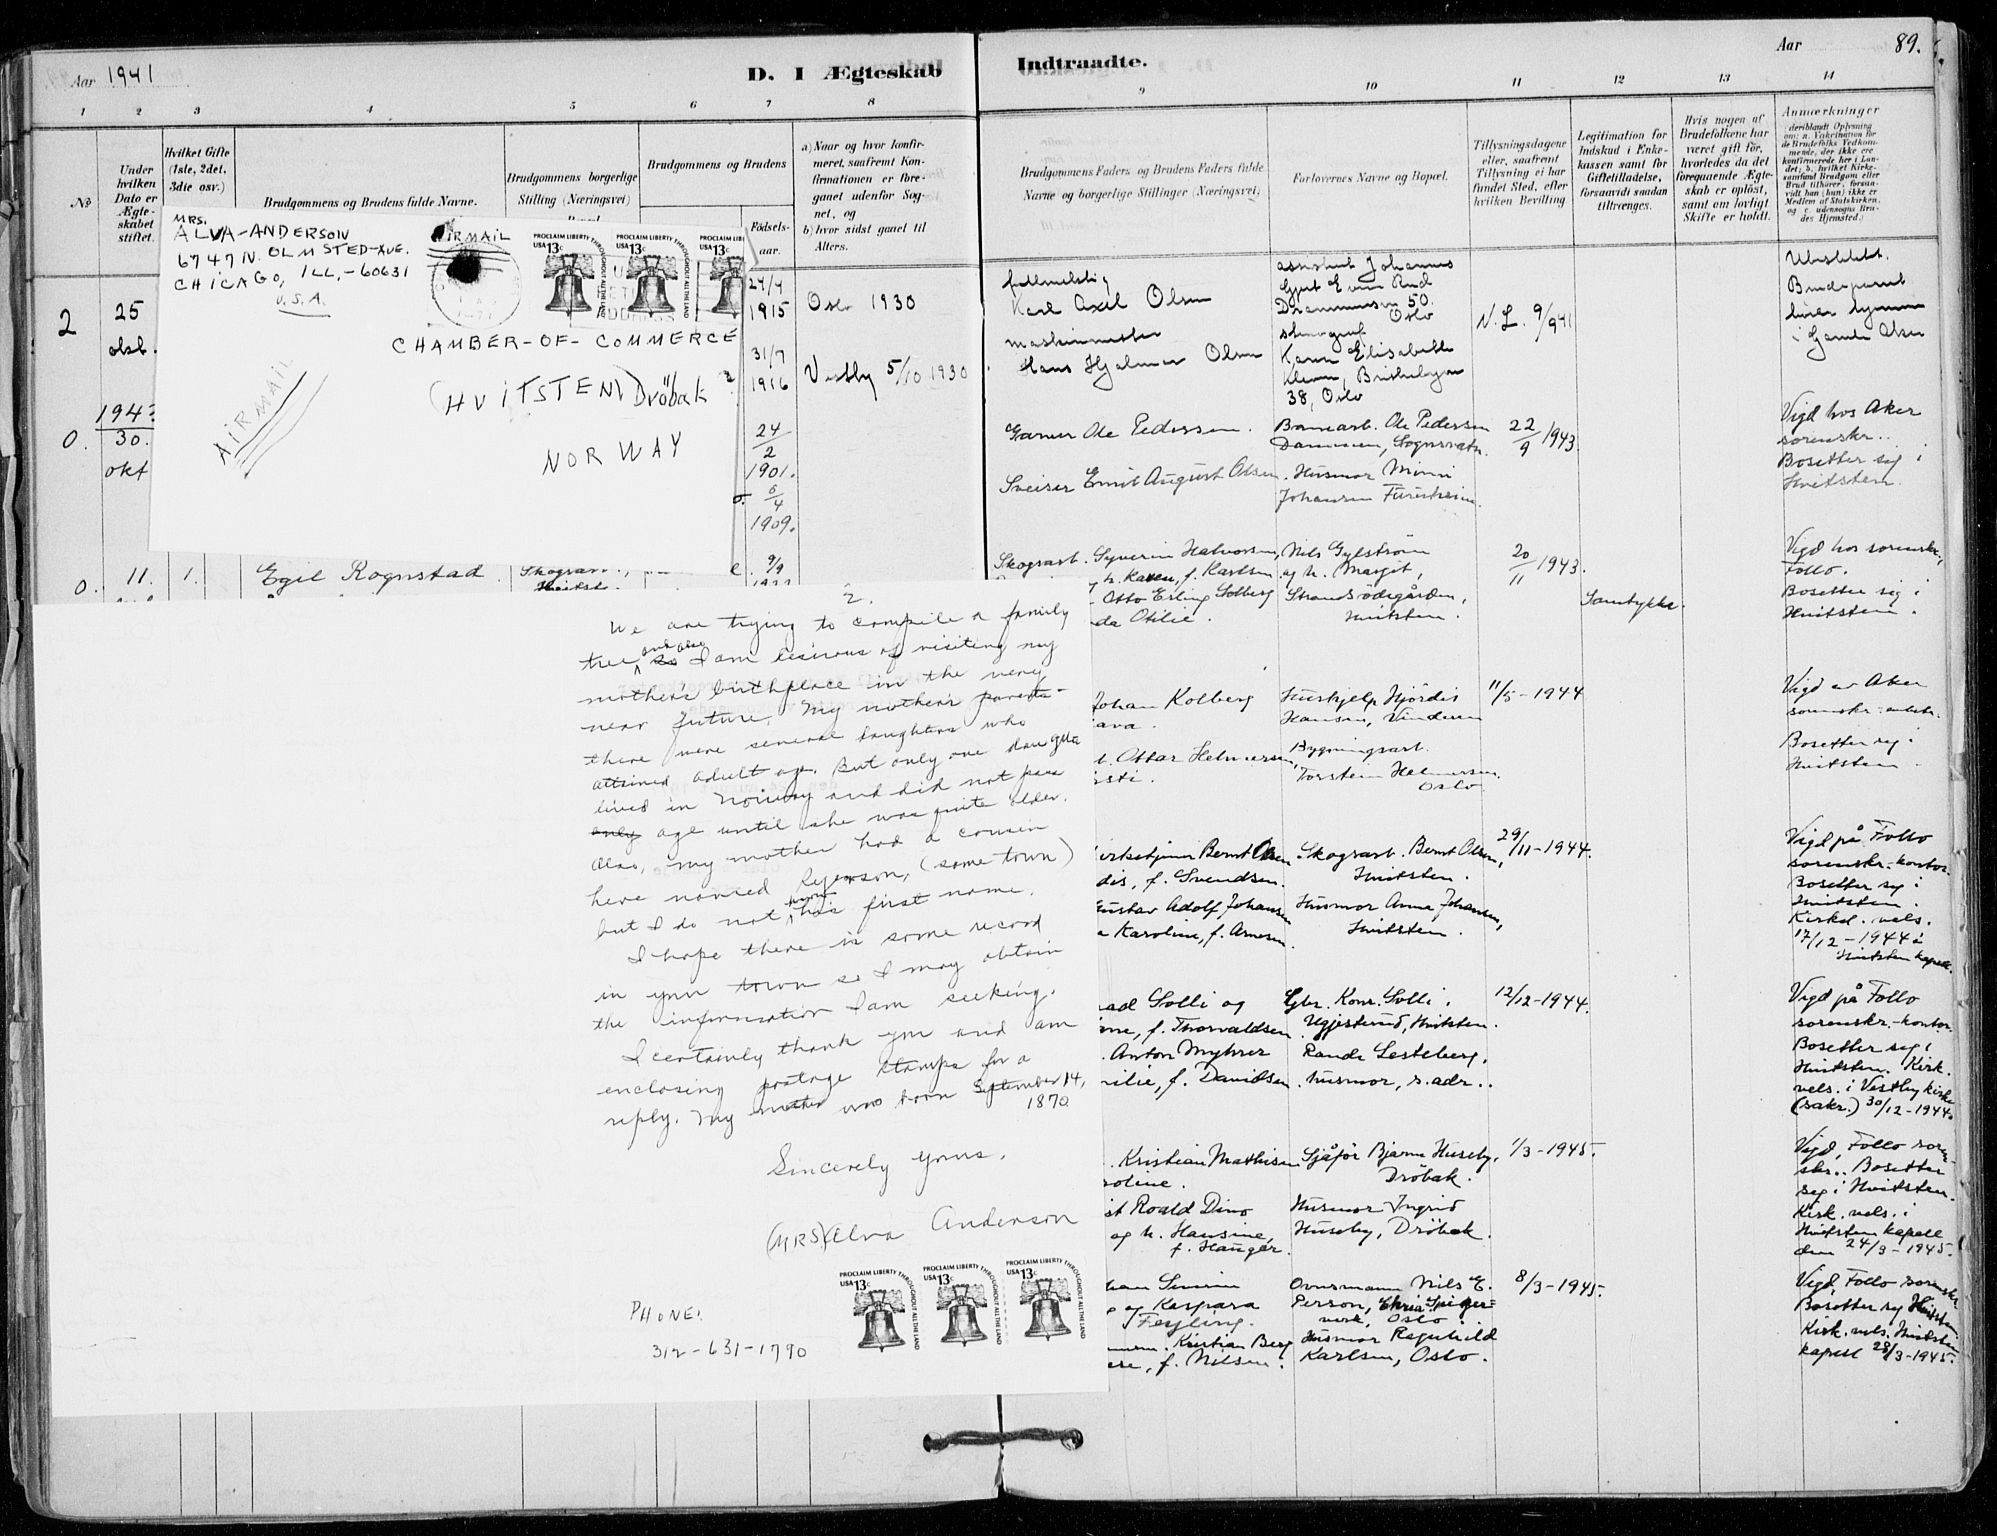 Aar 1941
D. I Ægteskab
1 2 3 4 5 6 7 8
No
Under
hvilken
Dato er
Ægte-
skabet
stiftet.
Hvilket Gifte
(1ste, 2det,
3die osv.)
Brudgommens og Brudens fulde Navne.
Brudgommens borgerlige
Stilling (Næringsvei)
Brudgommens og Brudens
Fødsels-
aar.
a) Naar og hvor konfir-
meret, saafremt Kon-
firmationen er fore-
gaaet udenfor Sog-
net, og
b) hvor sidst gaaet til
Alters.
2
25
oktb.
24/4
1915
Oslo 1930
31/7
1916
Vestby 5/10 1930
0.
30.
okt
24
2
1901.
6
4
1909.
0.
11.
1.
Egil Rognstad
9/9
MRS.
ALVA-ANDERSON
6747 N. OLMSTED-AVE.
CHICAGO, ILL.-60631
U.S.A.
AIRMAIL
PROCLAIM LIBERTY THROUGHOUT ALL THE LAND
USA 13c
PROCLAIM LIBERTY THROUGHOUT ALL THE LAND
USA 13c
USA 13c
CHAMBER-OF-COMMERCE
(HVITSTEN) Dröbak
AIRMAIL
NORWAY
2.
We are trying to compile a family
tree and also so I am desirous of visiting my
mother's birthplace in the very
near future. My mother's parents-
there were several daughters who
attained adult age. But only one daughter
lived in Norway and did not pass
only age until she was quite older.
Also, my mother had a cousin
here named Ryerson, (same town)
but I do not know his first name.
I hope there is some record
in your town so I may obtain
the information I am seeking.
I certainly thank you and am
enclosing postage stamps for a
reply. My mother was born September 14,
1870
Sincerely yours,
(MRS) Alva Anderson
PHONE:
312-631-1790
PROCLAIM LIBERTY THROUGHOUT ALL THE LAND
USA 13c
PROCLAIM LIBERTY THROUGHOUT ALL THE LAND
USA 13c
PROCLAIM LIBERTY THROUGHOUT ALL THE LAND
USA 13c
Indtraadte.
Aar
89.
9 10 11 12 13 14
Brudgommens Faders og Brudens Faders fulde
Navne og borgerlige Stillinger (Næringsvei)
Forlovernes Navne og Bopæl.
Tillysningsdagene
eller, saafremt
Tillysning ei har
fundet Sted, efter
hvilken Bevilling
Legitimation for
Indskud i Enke-
kassen samt for
Giftetilladelse,
forsaavidt saadan
tiltrænges.
Hvis nogen af
Brudefolkene har
været gift før,
hvorledes da det
foregaaende Ægte-
skab er opløst,
samt om lovligt
Skifte er holdt.
Anmærkninger
(deriblandt Oplysning
om: a. Vakcination for
de Brudefolks Vedkom-
mende, der ikke ere
konfirmerede her i Lan-
det; b. hvilket Kirke-
samfund Brudgom eller
Brud tilhører, forsaa-
vidt han (hun) ikke er
Medlem af Statskirken,
og c. udensogns Bru-
des Hjemsted.)
Karl Axel Olsen
maskinmester
Hans Hjalmar Olsen
assistent Johannes
Gjert Evin Rud
Drammensv 50.
Oslo
stenograf
Karen Elisabeth
38, Oslo
N. L. 9/941
Brudeparet
Garver Ole Pedersen.
Sveiser Emil August Olsen
Ole Pedersen
Sognsvatn.
Husmor Minni
Johansen
22
9 1943
Vigd hos Aker
sorenskr..
Bosetter sig i
Hvitsten.
Skogsarb. Syverin Halvorsen,
h. Karen, f. Karlsen
Otto Erling Solberg
Otilie.
Nils Gylström
og h. Margit,
Strandsödegården,
Hvitsten.
20
11 1943.
Samtykke.
Vigd hos sorenskr,
Follo.
Bosetter sig i
Hvitsten.
Johan Kolberg
Ottar Helmersen,
Hushjelp Hjördis
Hansen, Vinderen
Bygningsarb.
Torstein Helmersen.
Oslo
11/5-1944
Vigd av Aker
Bosetter sig i
Hvitsten
Kirketjener Bernt Olsen
f. Svendsen.
Gustav Adolf Johansen
Karoline, f. Arnesen.
Skogsarb. Bernt Olsen,
Hvitsten.
Husmor Anna Johansen,
Hvitsten.
29/11-1944.
Vigd på Follo
sorenskr.-kontor.
Bosetter sig i
Hvitsten.
Kirkel. vels.
17/12-1944 i
Hvitsten kapell.
Solli og
f. Thorvaldsen
Anton Myhrer
f. Davidsen
Gbr. Konr. Solli.
Ugjesterud, Hvitsten.
Randi Lesteberg.
husmor, s. adr..
12/12-1944.
Vigd på Follo
sorenskr.-kontor.
Bosetter sig i
Hvitsten. Kirk.
vels. i Vestby kirke
(sakr.) 30/12-1944.
Kristian Mathisen
Roald Dino
og h. Hansine,
f. Hauger.
Sjåför Bjarne Huseby,
Dröbak.
Husmor Ingrid
Huseby, Dröbak.
1/3-1945.
Vigd, Follo soren-
skr.. Bosetter
seg i Hvitsten.
Kirk. vels. i
Hvitsten kapell
den 24/3-1945.
og Kaspara
Kristian Berg
f. Nilsen.
Ovnsmann Nils E.
Person, Christ. Spiger-
verk, Oslo.
Husmor Ragnhild
Karlsen, Oslo.
8/3-1945.
Vigd Follo sorenskr
Bosetter seg Hvitsten
Kirk. vels. Hvitsten
kapell 28/3-1945.